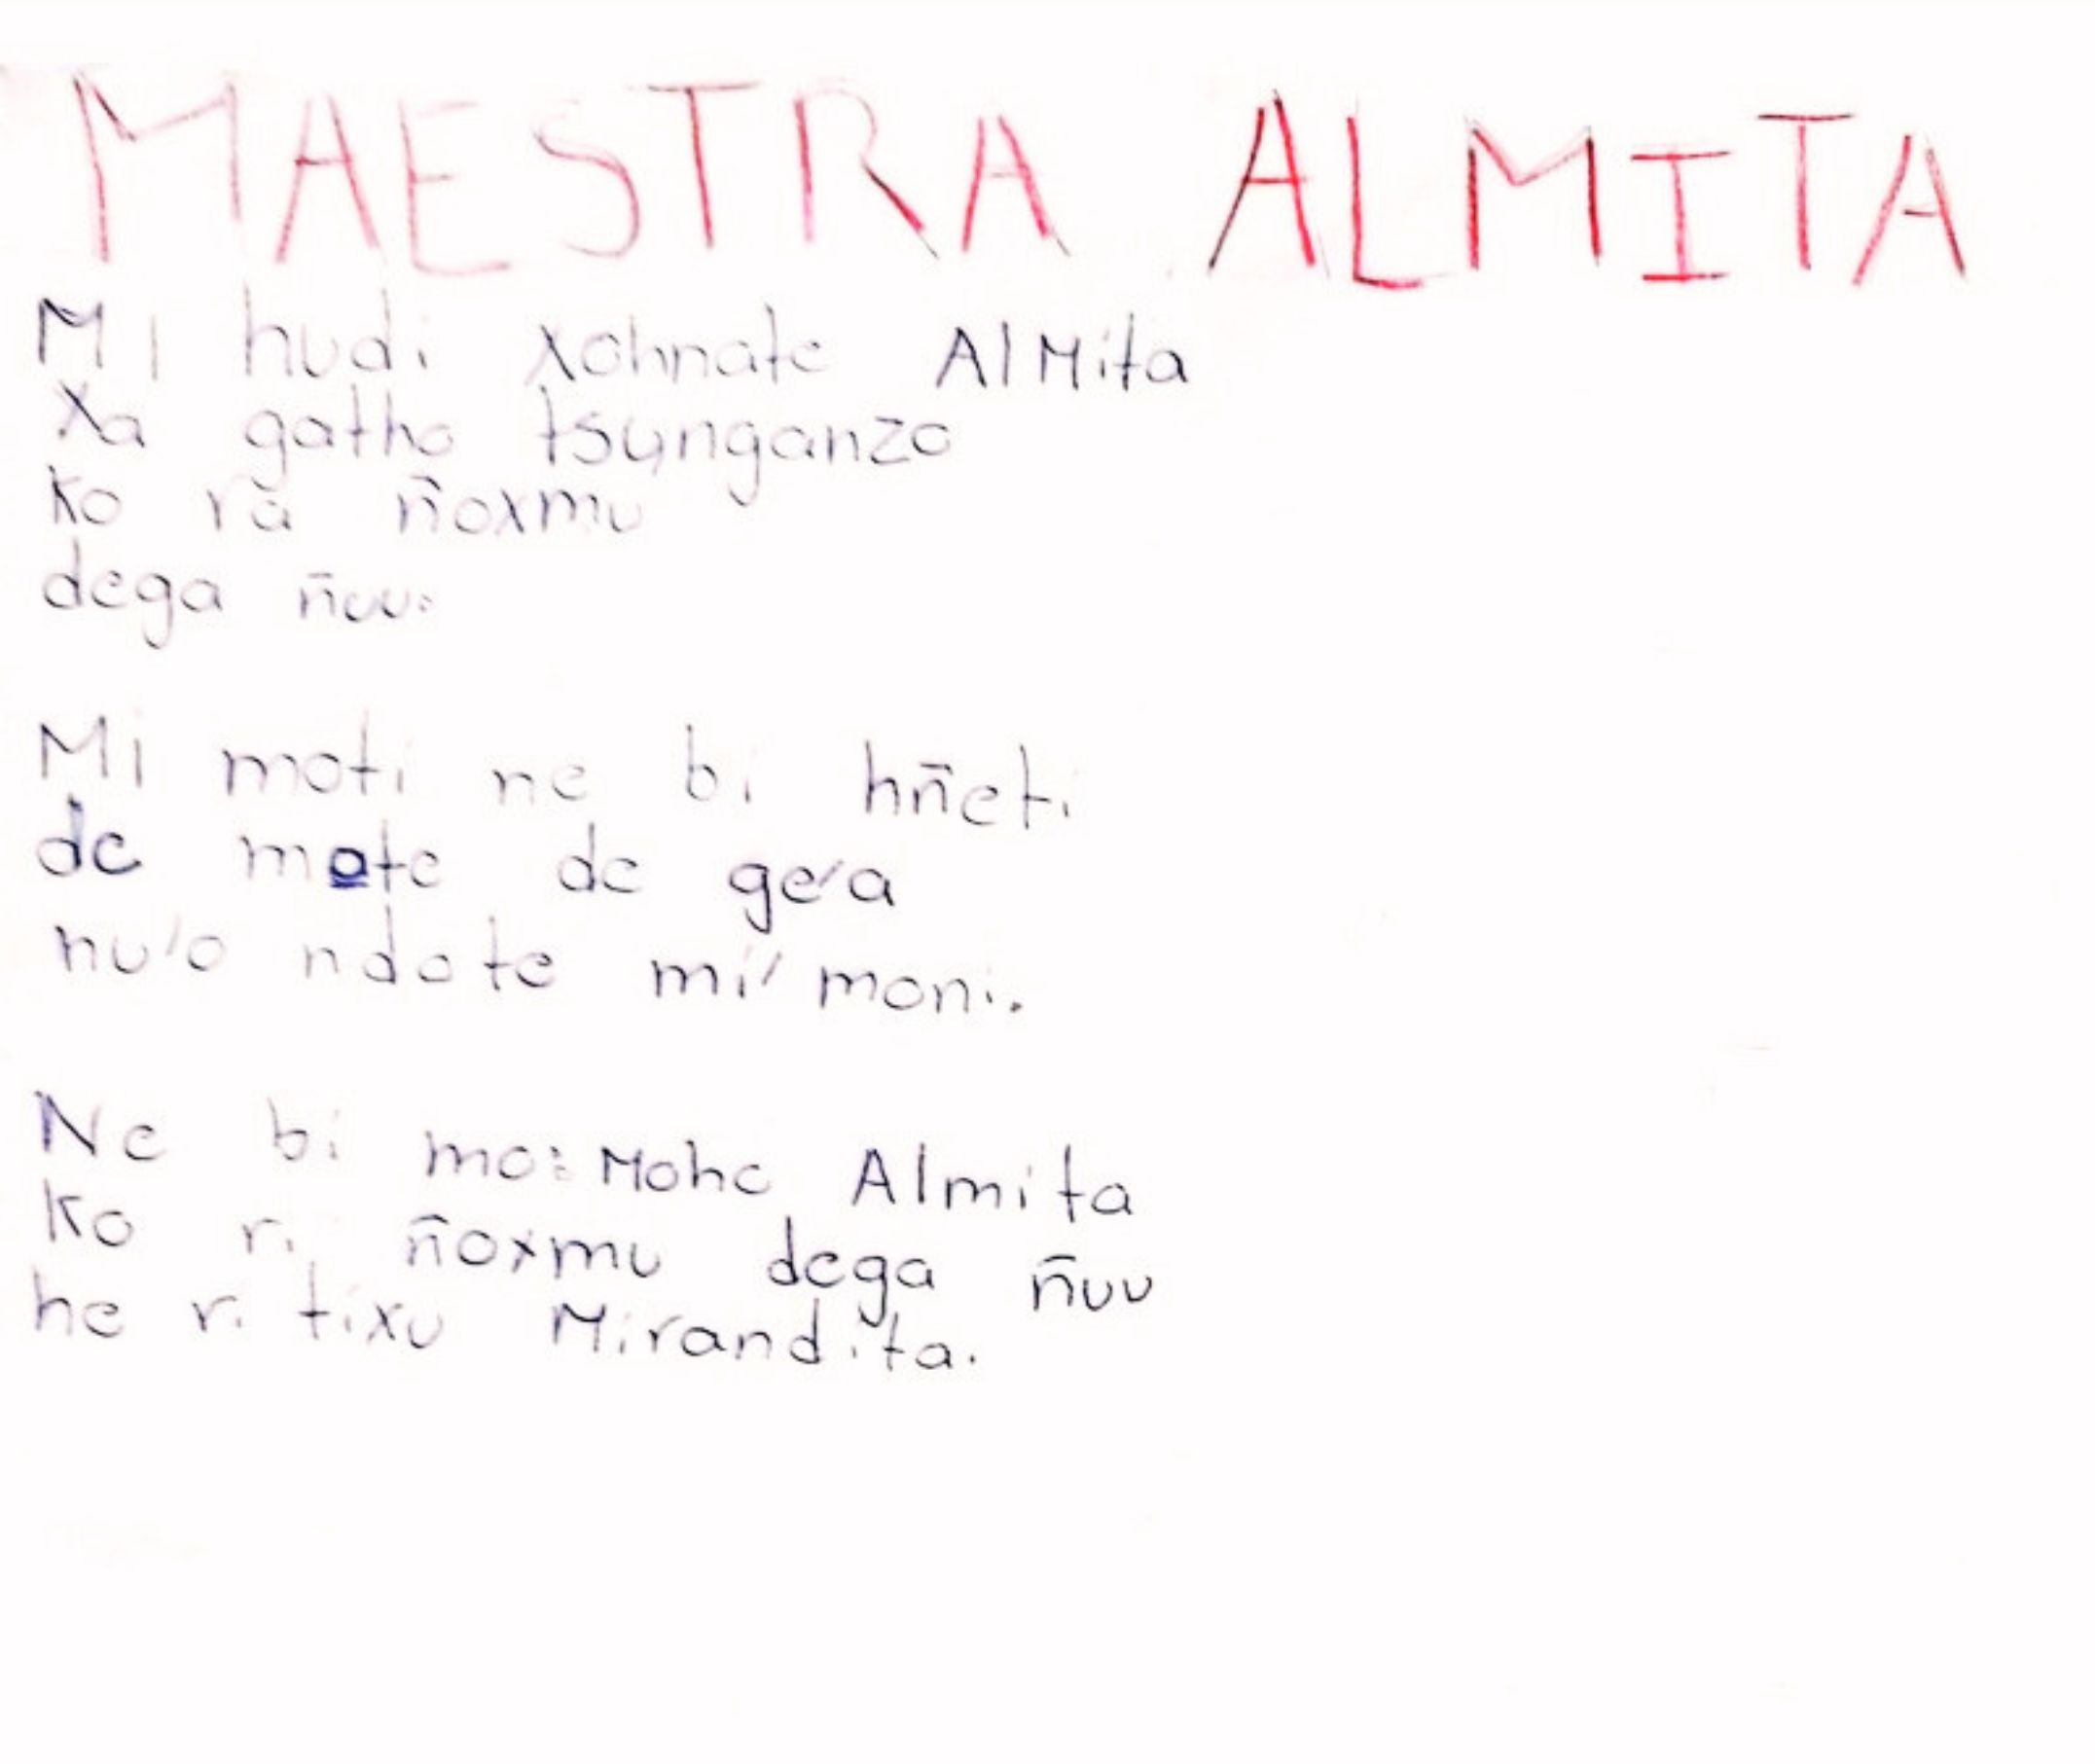 MAESTRA ALMITA
Mi hudi xohnate Almita
Xa gatho tsunganzo
ko ra ñoxmu
dega ñuu:
Mi moti ne bi hñeti
de mote de ge'a
nu'o ndote mi' moni.
Ne bi mo: Mohe Almita
Ko ri ñoxmu dega ñuu
he ri tixu Mirandita.